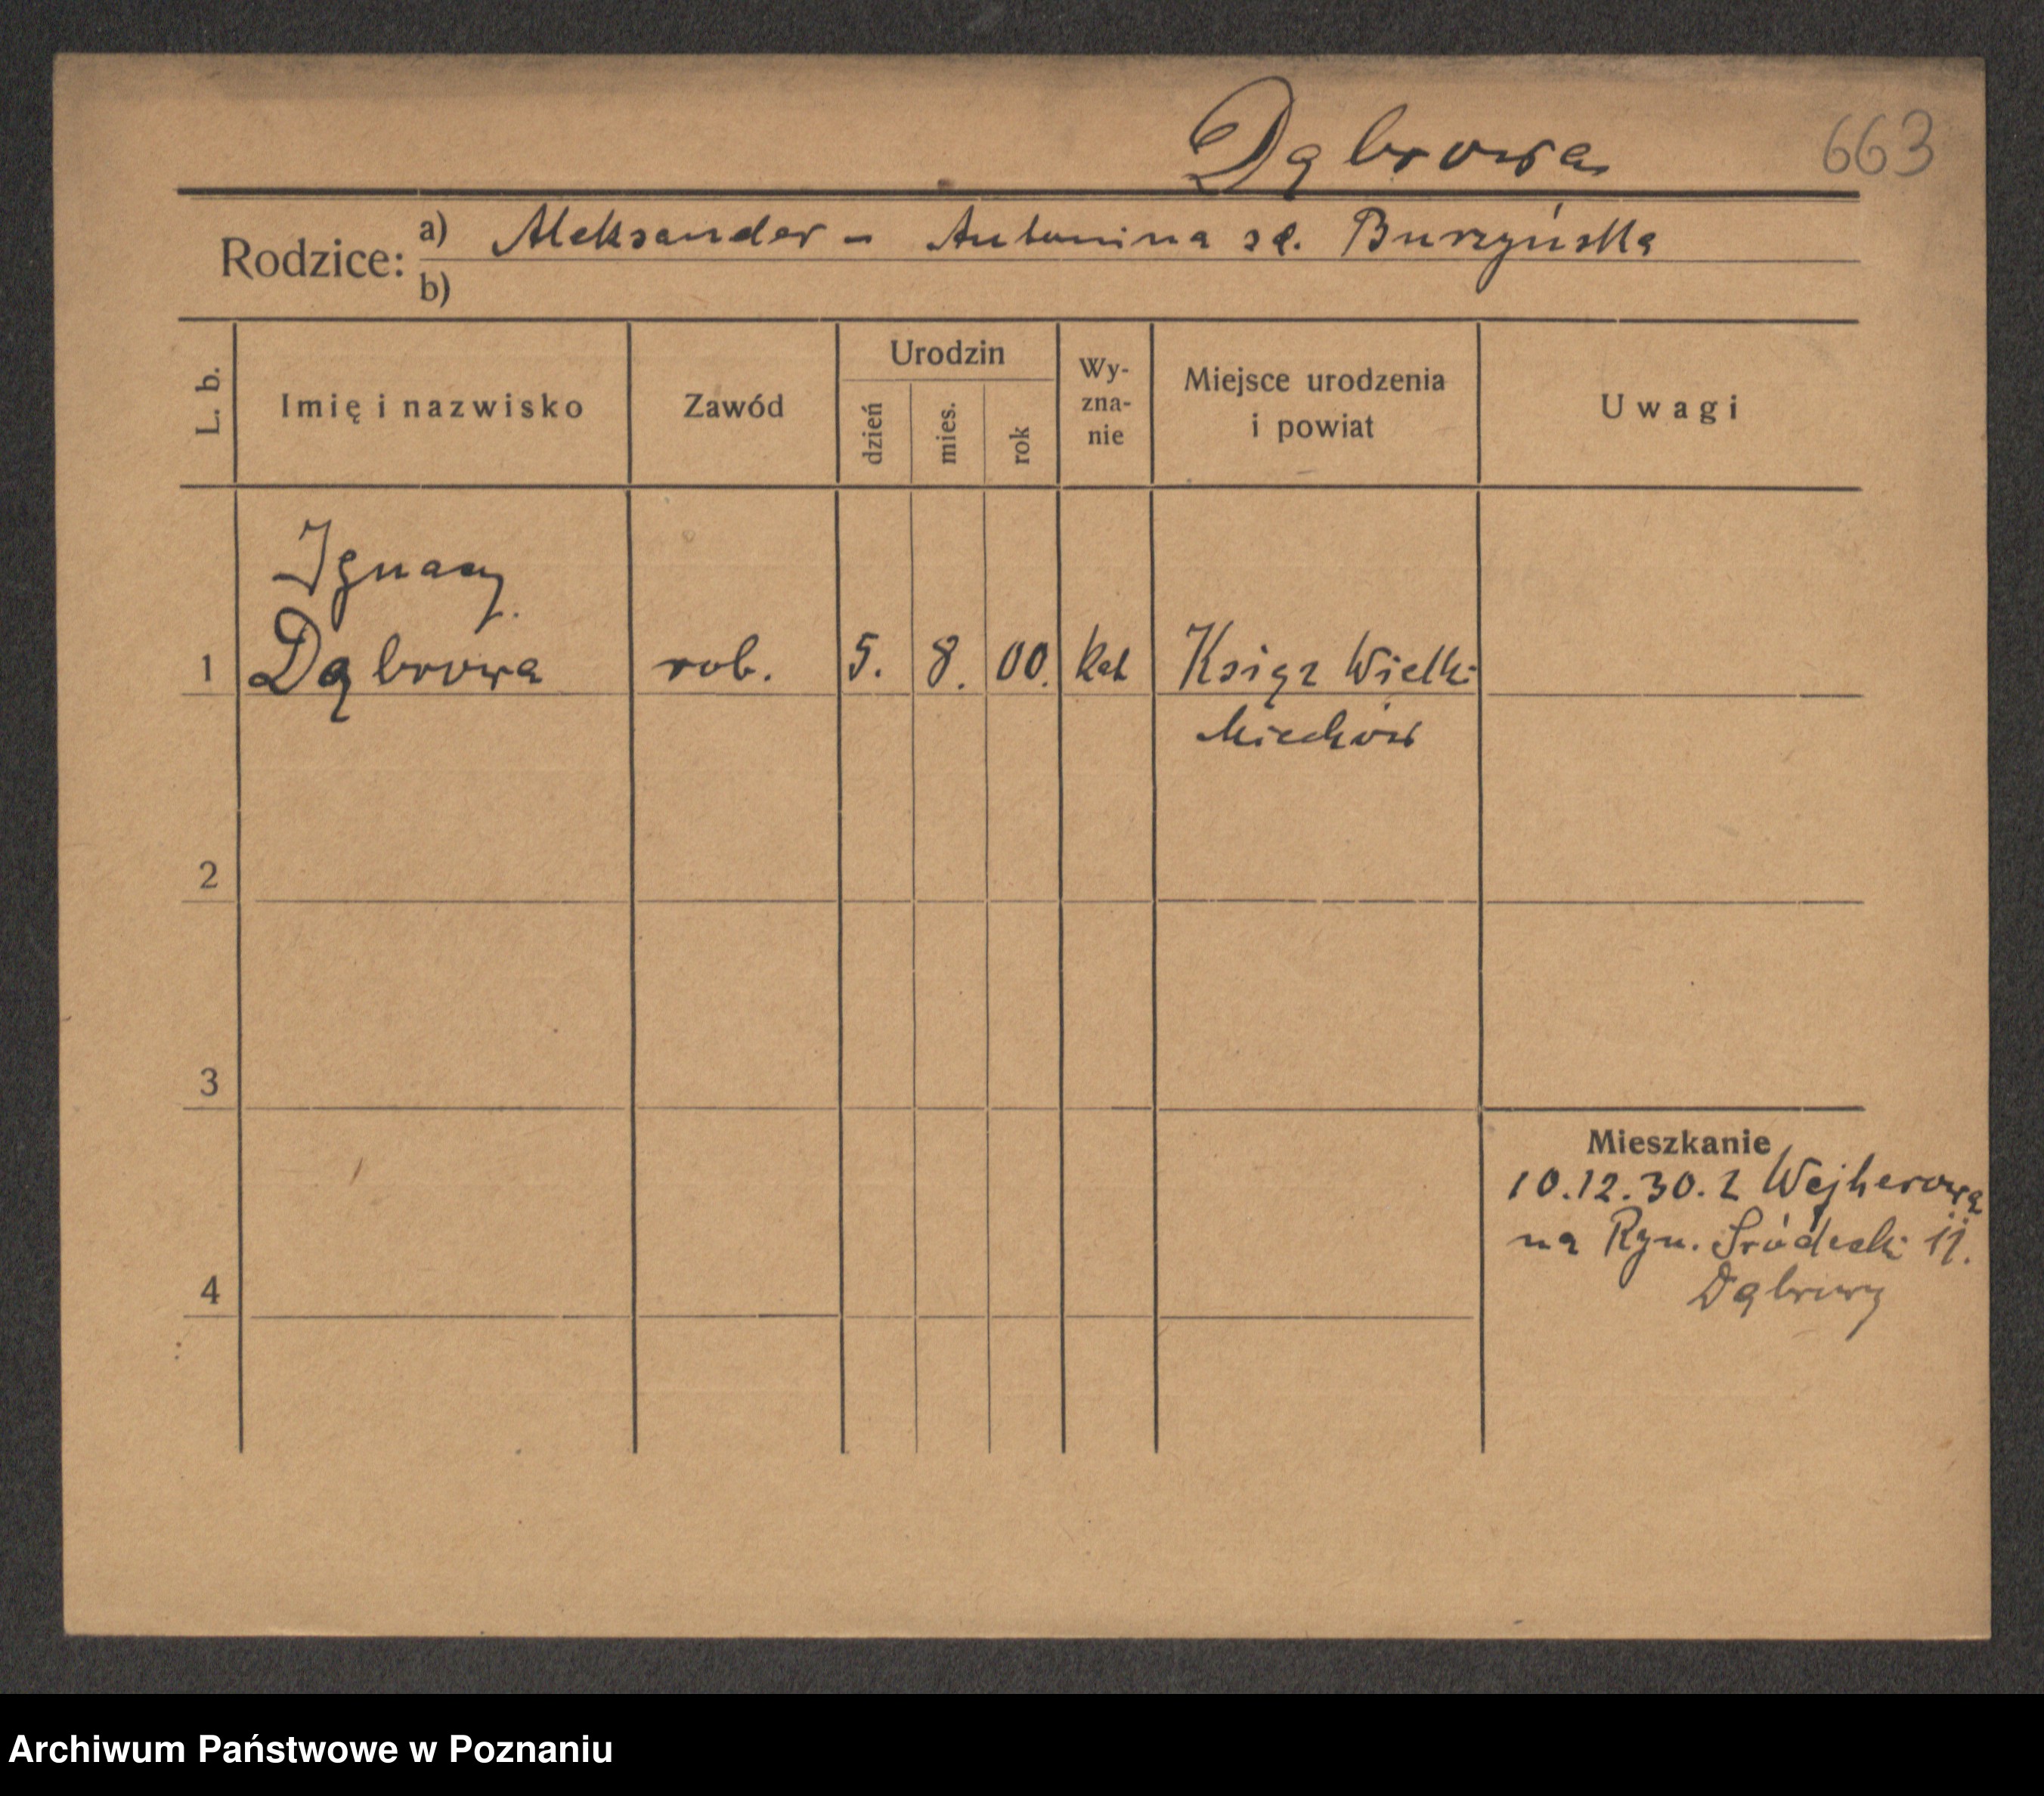 Dąbrowa 663
Rodzice: a) Aleksander - Antonina zd. Burzyńska
b)
L. b. Imię i nazwisko Zawód Urodzin dzień mies. rok Wy-zna-nie Miejsce urodzenia i powiat Uwagi
Ignacy
1 Dąbrowa rob. 5. 8. 00. kat Książ Wielki
Miechów
2
3
Mieszkanie
10.12.30. z Wejherowa
na Ryn. Śródecki 11.
4 Dąbrowy
Archiwum Państwowe w Poznaniu